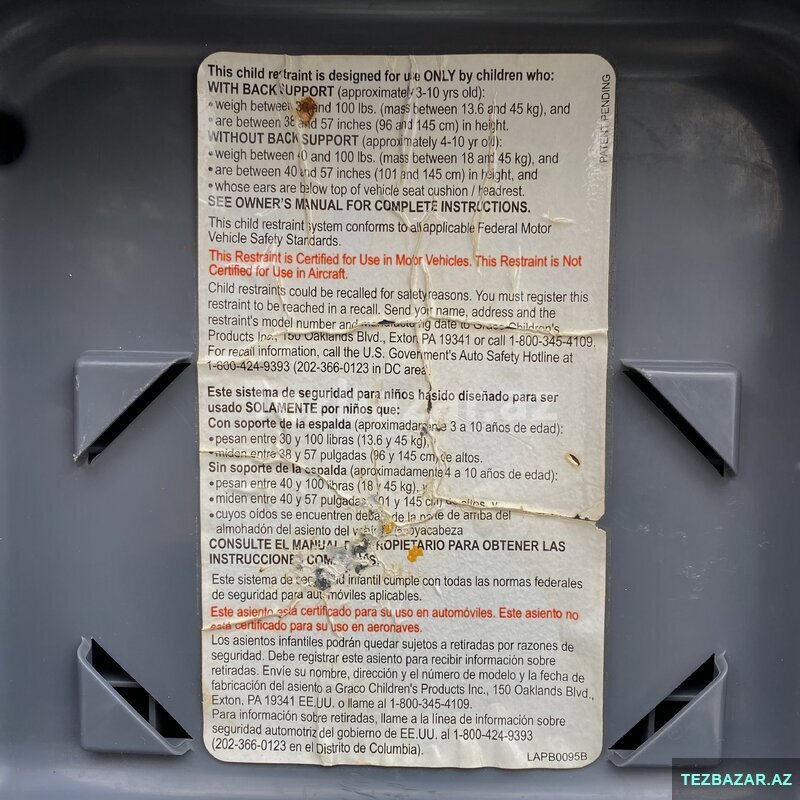 This child restraint is designed for use ONLY by children who:
WITH BACK SUPPORT (approximately 3-10 yrs old):
• weigh between 30 and 100 lbs. (mass between 13.6 and 45 kg), and
• are between 38 and 57 inches (96 and 145 cm) in height.
WITHOUT BACK SUPPORT (approximately 4-10 yr old):
• weigh between 40 and 100 lbs. (mass between 18 and 45 kg), and
• are between 40 and 57 inches (101 and 145 cm) in height, and
• whose ears are below top of vehicle seat cushion / headrest.
SEE OWNER'S MANUAL FOR COMPLETE INSTRUCTIONS.
This child restraint system conforms to all applicable Federal Motor
Vehicle Safety Standards.
This Restraint is Certified for Use in Motor Vehicles. This Restraint is Not
Certified for Use in Aircraft.
Child restraints could be recalled for safety reasons. You must register this
restraint to be reached in a recall. Send your name, address and the
restraint's model number and manufacturing date to Graco Children's
Products Inc., 150 Oaklands Blvd., Exton, PA 19341 or call 1-800-345-4109.
For recall information, call the U.S. Government's Auto Safety Hotline at
1-800-424-9393 (202-366-0123 in DC area).
Este sistema de seguridad para niños ha sido diseñado para ser
usado SOLAMENTE por niños que:
Con soporte de la espalda (aproximadamente 3 a 10 años de edad):
• pesan entre 30 y 100 libras (13.6 y 45 kg), y
• miden entre 38 y 57 pulgadas (96 y 145 cm) de altos.
Sin soporte de la espalda (aproximadamente 4 a 10 años de edad):
• pesan entre 40 y 100 libras (18 y 45 kg), y
• miden entre 40 y 57 pulgadas (101 y 145 cm) de altos, y
• cuyos oídos se encuentren debajo de la parte de arriba del
almohadón del asiento del vehículo/apoyacabeza
CONSULTE EL MANUAL DEL PROPIETARIO PARA OBTENER LAS
INSTRUCCIONES COMPLETAS.
Este sistema de seguridad infantil cumple con todas las normas federales
de seguridad para automóviles aplicables.
Este asiento está certificado para su uso en automóviles. Este asiento no
está certificado para su uso en aeronaves.
Los asientos infantiles podrán quedar sujetos a retiradas por razones de
seguridad. Debe registrar este asiento para recibir información sobre
retiradas. Envíe su nombre, dirección y el número de modelo y la fecha de
fabricación del asiento a Graco Children's Products Inc., 150 Oaklands Blvd.,
Exton, PA 19341 EE.UU. o llame al 1-800-345-4109.
Para información sobre retiradas, llame a la línea de información sobre
seguridad automotriz del gobierno de EE.UU. al 1-800-424-9393
(202-366-0123 en el Distrito de Columbia).
LAPB0095B
PATENT PENDING
TEZBAZAR.AZ